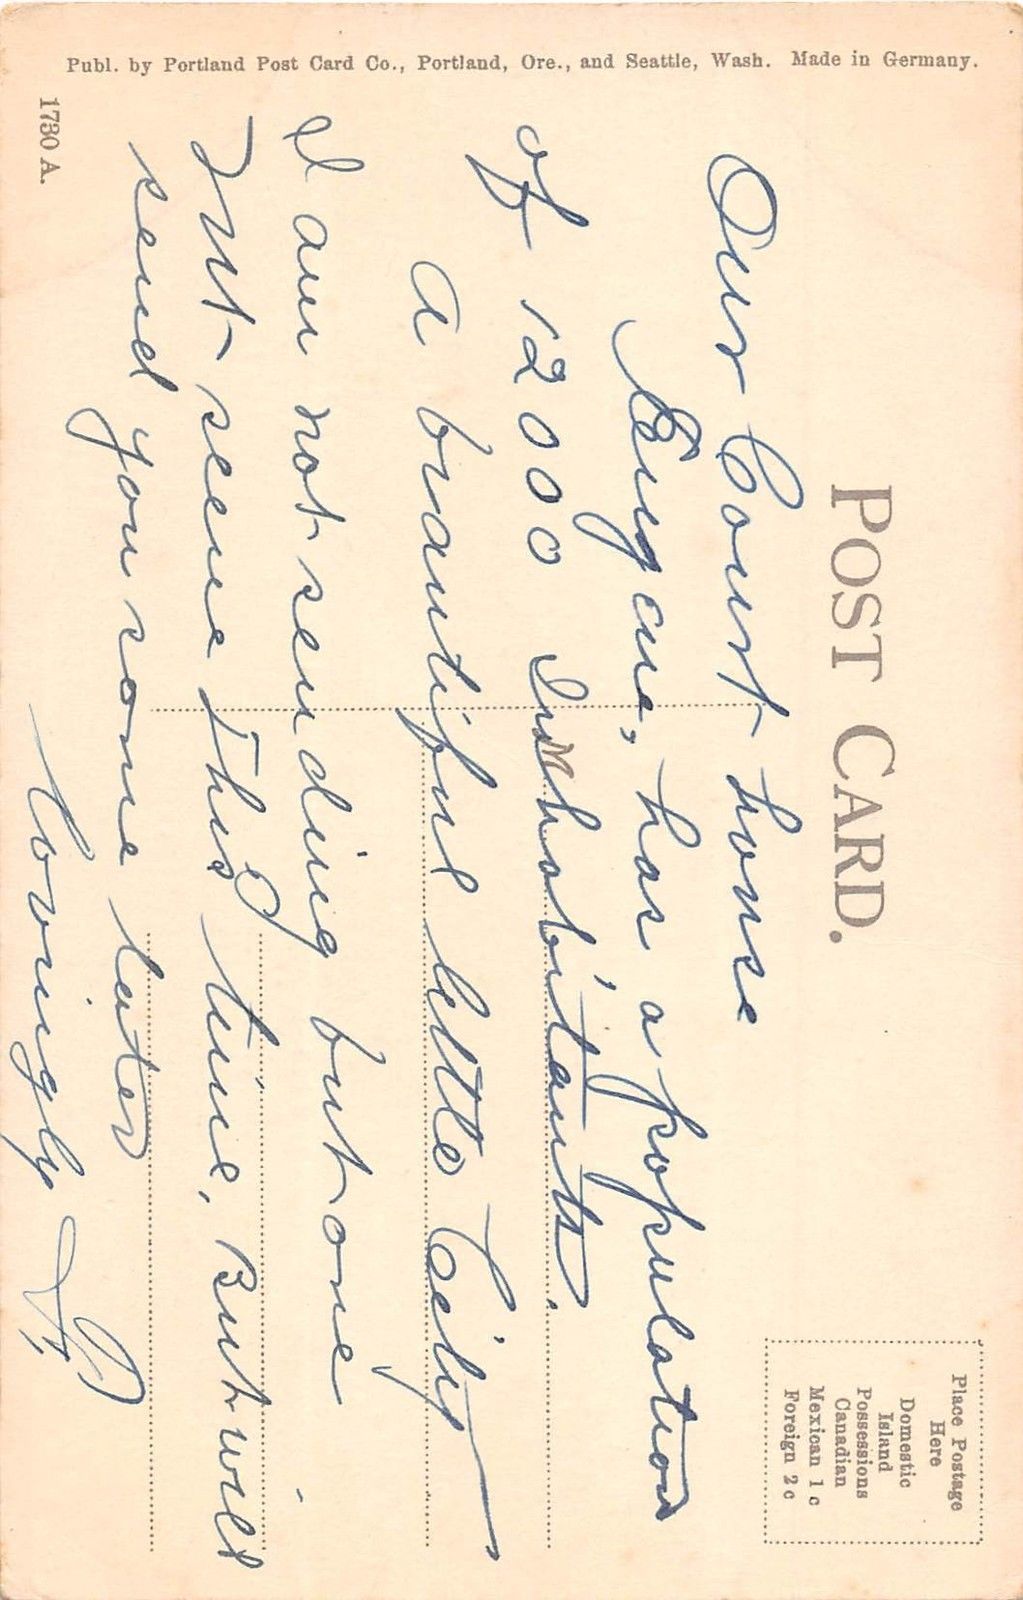 Publ. by Portland Post Card Co., Portland, Ore., and Seattle, Wash. Made in Germany.
1730 A.
POST CARD.
Place Postage
Here
Domestic
Island
Possessions
Canadian
Mexican 1 c
Foreign 2 c
Our Court house
Eugene, has a population
of 12000 Inhabitants.
A beautiful little City
I am not sending but one
not seene This time, But will
send you some later
Lovingly